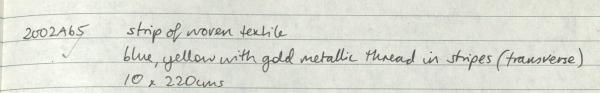 2002A65 strip of woven textile
blue, yellow with gold metallic thread in stripes (transverse)
10 x 220cms